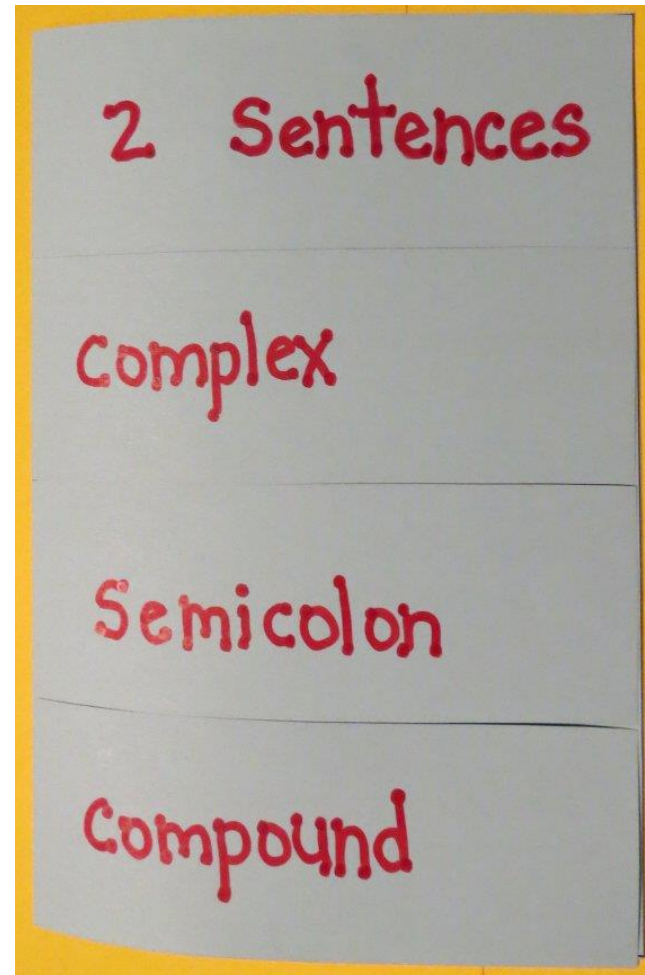 2 Sentences
Complex
Semicolon
Compound